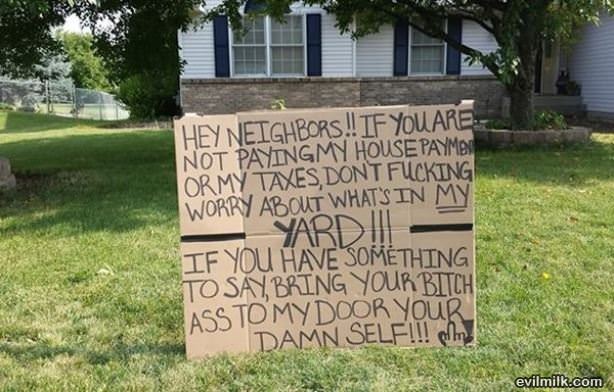 HEY NEIGHBORS!! IF YOU ARE
NOT PAYING MY HOUSE PAYMENT
OR MY TAXES, DON'T FUCKING
WORRY ABOUT WHAT'S IN MY
YARD!!!
IF YOU HAVE SOMETHING
TO SAY, BRING YOUR BITCH
ASS TO MY DOOR YOUR
DAMN SELF!!!
evilmilk.com